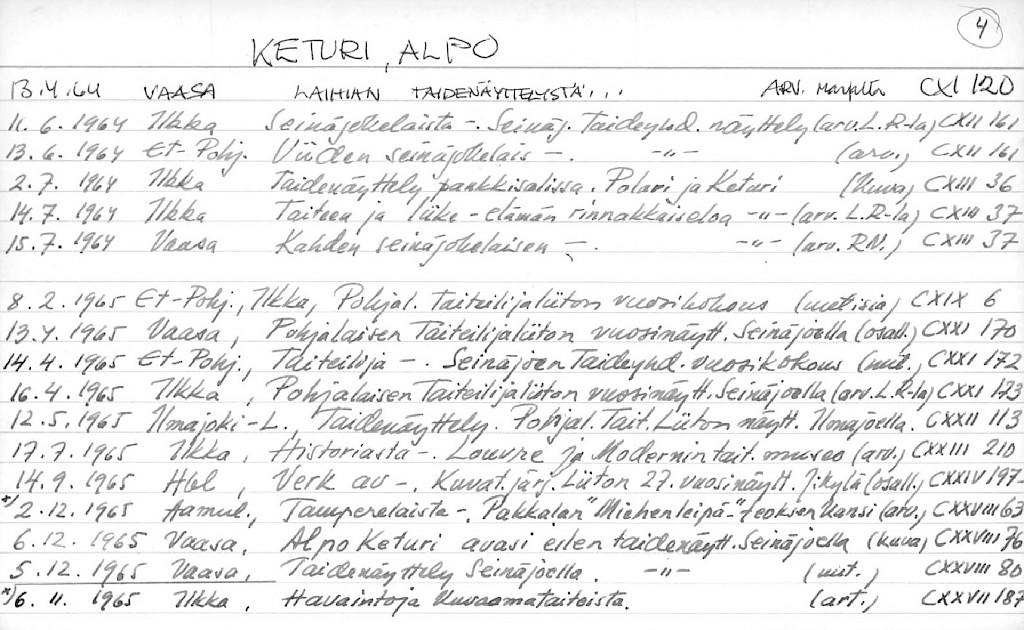 4
KETURI, ALPO
13.4.64 VAASA LAIHIAN TAIDENÄYTTELYSTÄ... ARV. CXI 120
11.6.1964 Ilkka Seinäjokelaista -. Seinäj. Taideyhd. näyttely (arv. L.R-la) CXII 161
13.6.1964 Et-Pohj. Viiden seinäjokelais -. -"- (arv.) CXII 161
2.7.1964 Ilkka Taidenäyttely pankkisalissa. Polari ja Keturi (kuva) CXIII 36
14.7.1964 Ilkka Taiteen ja liike-elämän rinnakkaiseloa -"- (arv. L.R-la) CXIII 37
15.7.1964 Vaasa Kahden seinäjokelaisen -. -"- (arv. R.N.) CXIII 37
8.2.1965 Et-Pohj., Ilkka, Pohjal. Taiteilijaliiton vuosikokous (uutisia) CXIX 6
13.4.1965 Vaasa, Pohjalaisen Taiteilijaliiton vuosinäytt. Seinäjoella (osall.) CXXI 170
14.4.1965 Et-Pohj., Taiteilija -. Seinäjoen Taideyhd. vuosikokous (uut.), CXXI 172
16.4.1965 Ilkka, Pohjalaisen Taiteilijaliiton vuosinäytt. Seinäjoella (arv. L.R-la) CXXI 173
12.5.1965 Ilmajoki-L., Taidenäyttely. Pohjal. Tait. Liiton näytt. Ilmajoella. CXXII 113
17.7.1965 Ilkka, Historiasta -. Louvre ja Modernin tait. museo (arv.) CXXIII 210
14.9.1965 Hbl, Verk av -. Kuvat. järj. Liiton 27. vuosinäytt. J:kylä (osall.) CXXIV 197-
x) 2.12.1965 Aamul., Tamperelaista -. Pakkalan "Miehenleipä-" teoksen kansi (arv.) CXXVIII 63
6.12.1965 Vaasa, Alpo Keturi avasi eilen taidenäytt. Seinäjoella (kuva) CXXVIII 76
5.12.1965 Vaasa, Taidenäyttely Seinäjoella. -"- (uut.) CXXVIII 80
x) 6.11.1965 Ilkka, Havaintoja kuvaamataiteista. (art.) CXXVII 187